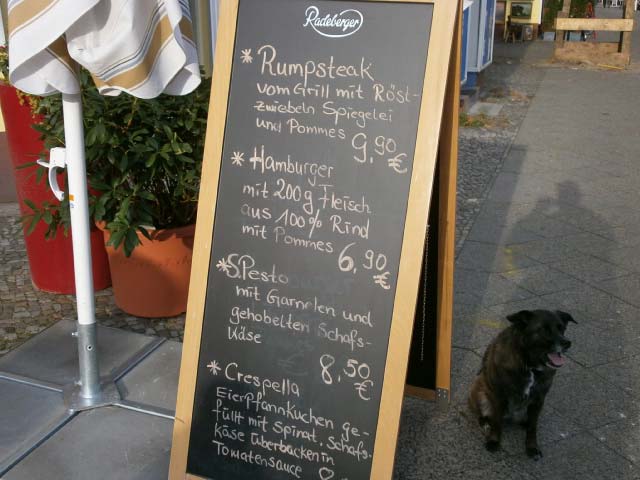 Radeberger
* Rumpsteak
vom Grill mit Röst-
zwiebeln Spiegelei
und Pommes
9,90 €
* Hamburger
mit 200g Fleisch
aus 100% Rind
mit Pommes
6,90 €
* S.Pesto
mit Garnelen und
gehobelten Schafs-
Käse
8,50 €
* Crespella
Eierpfannkuchen ge-
füllt mit Spinat, Schafs-
käse überbacken in
Tomatensauce